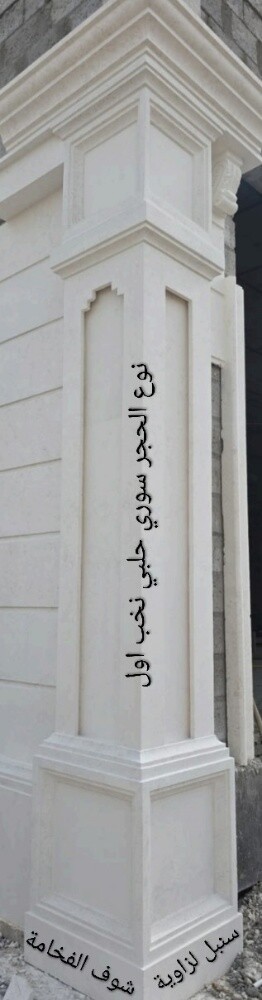 نوع الحجر سوري حلبي نخب اول
سنبل لزاوية
شوف الفخامة